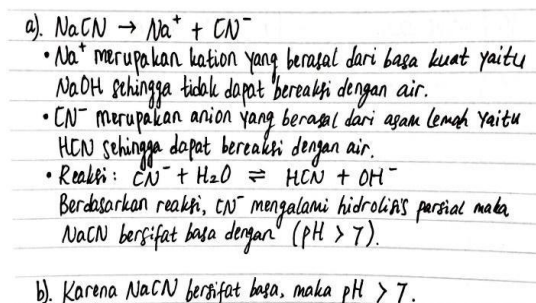 a). NaCN → Na⁺ + CN⁻
• Na⁺ merupakan kation yang berasal dari basa kuat yaitu
NaOH sehingga tidak dapat bereaksi dengan air.
• CN⁻ merupakan anion yang berasal dari asam lemah yaitu
HCN sehingga dapat bereaksi dengan air.
• Reaksi : CN⁻ + H₂O ⇌ HCN + OH⁻
Berdasarkan reaksi, CN⁻ mengalami hidrolisis parsial maka
NaCN bersifat basa dengan (pH > 7).
b). Karena NaCN bersifat basa, maka pH > 7.